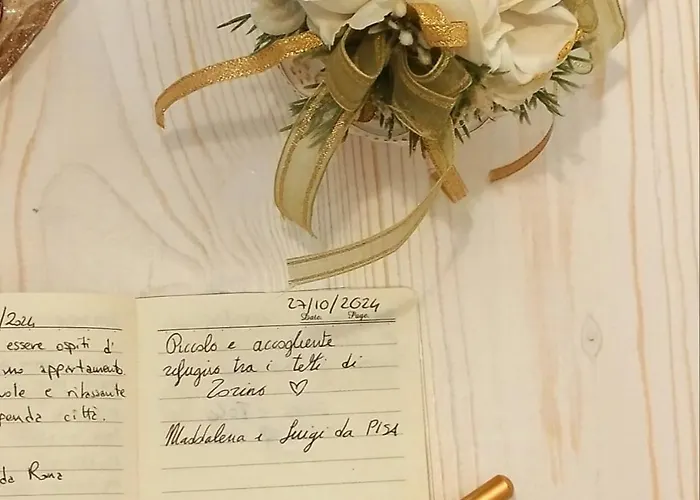 /2024
essere ospiti d'
uno appartamento
vole e rilassante
penda città.
da Roma
27/10/2024
Date. Page.
Piccolo e accogliente
rifugio tra i tetti di
Torino ♡
Maddalena e Luigi da PISA